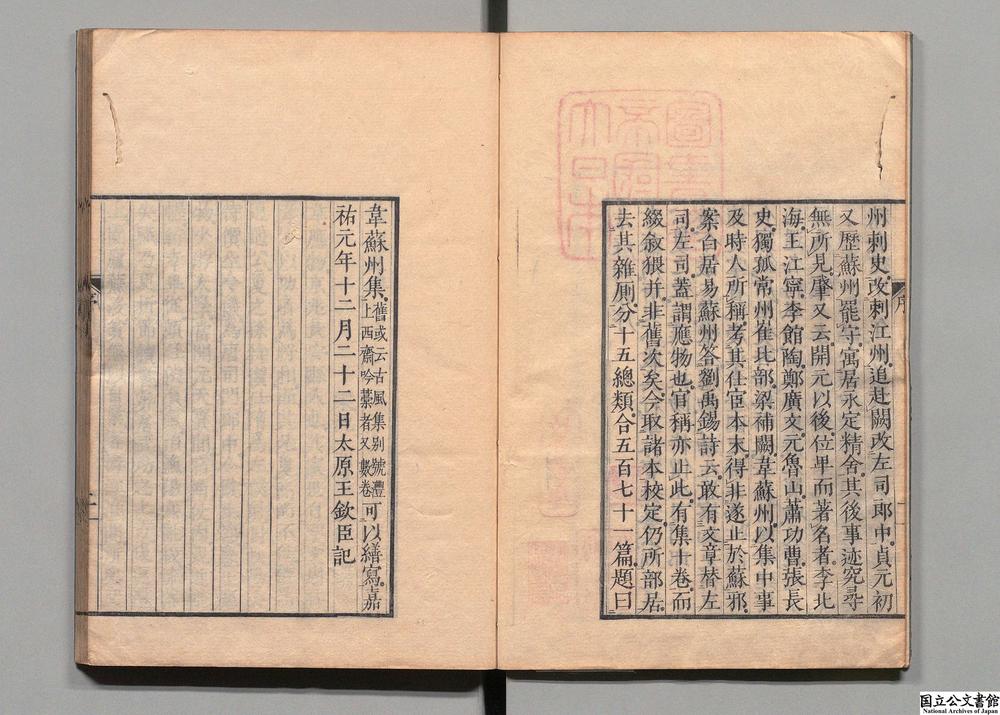 州刺史改刺江州追赴闕改左司郎中貞元初
又歷蘇州罷守寓居永定精舍其後事迹究尋
無所見肇又云開元以後位卑而著名者李北
海王江寧李館陶鄭廣文元魯山蕭功曹張長
史獨孤常州崔比部梁補闕韋蘇州以集中事
及時人所稱考其仕宦本末得非遂止於蘇邪
案白居易蘇州答劉禹錫詩云敢有文章替左
司左司蓋謂應物也官稱亦止此有集十卷而
綴敘猥并非舊次矣今取諸本校定仍所部居
去其雜厠分十五總類合五百七十一篇題曰
韋蘇州集舊或云古風集別號灃上西齋吟藁者又數卷可以繕寫嘉
祐元年十二月二十二日太原王欽臣記
序
国立公文書館
National Archives of Japan